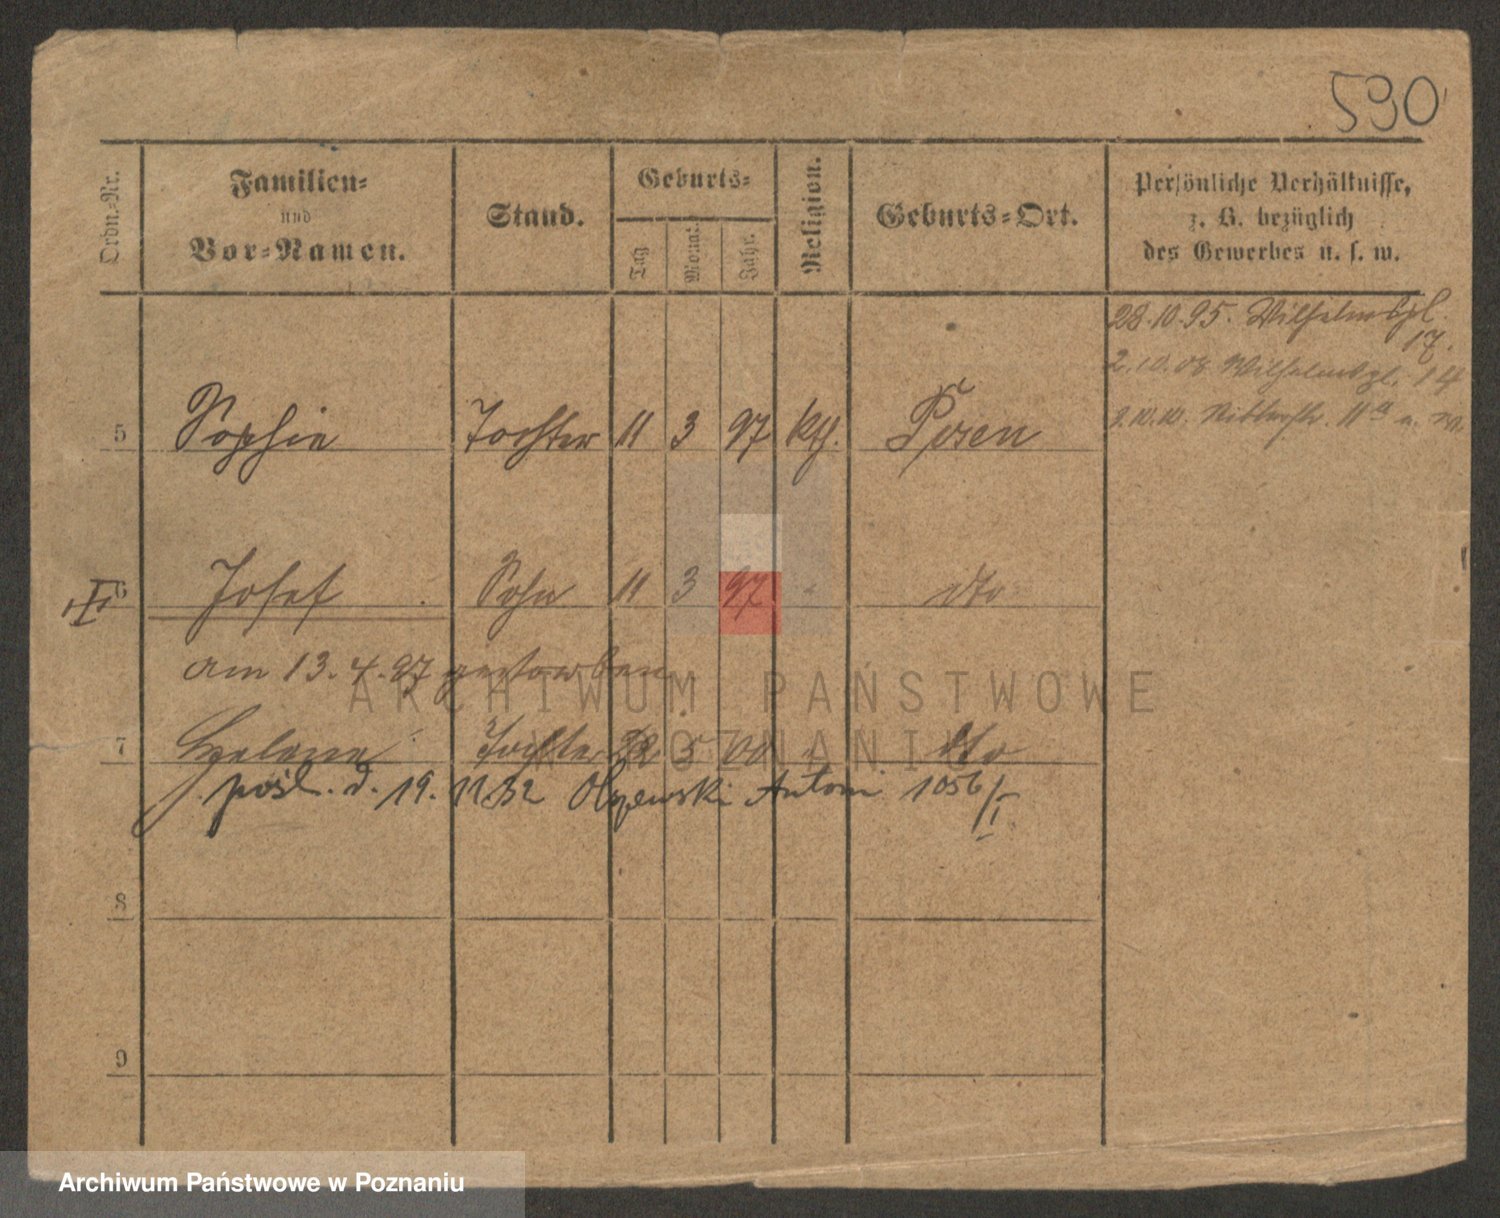 590
Ordn.-Nr.
Familien-
und
Vor-Namen.
Stand.
Geburts-
Tag
Monat.
Jahr.
Religion.
Geburts-Ort.
Persönliche Verhältnisse,
z. B. bezüglich
des Gewerbes u. s. w.
28.10.95. Wilhelmspl.
17.
2.10.08 Wilhelmspl. 14
3.10.10. Ritterstr. 11a
5 Sophie Tochter 11 3 97 kth. Posen
6 Josef Sohn 11 3 97 dto
am 13.4.97 gestorben
7 Helene Tochter 5 00 dto
pośl. d. 19. 11.32 Olszewski Antoni 1056/I
8
9
ARCHIWUM PAŃSTWOWE
W POZNANIU
Archiwum Państwowe w Poznaniu